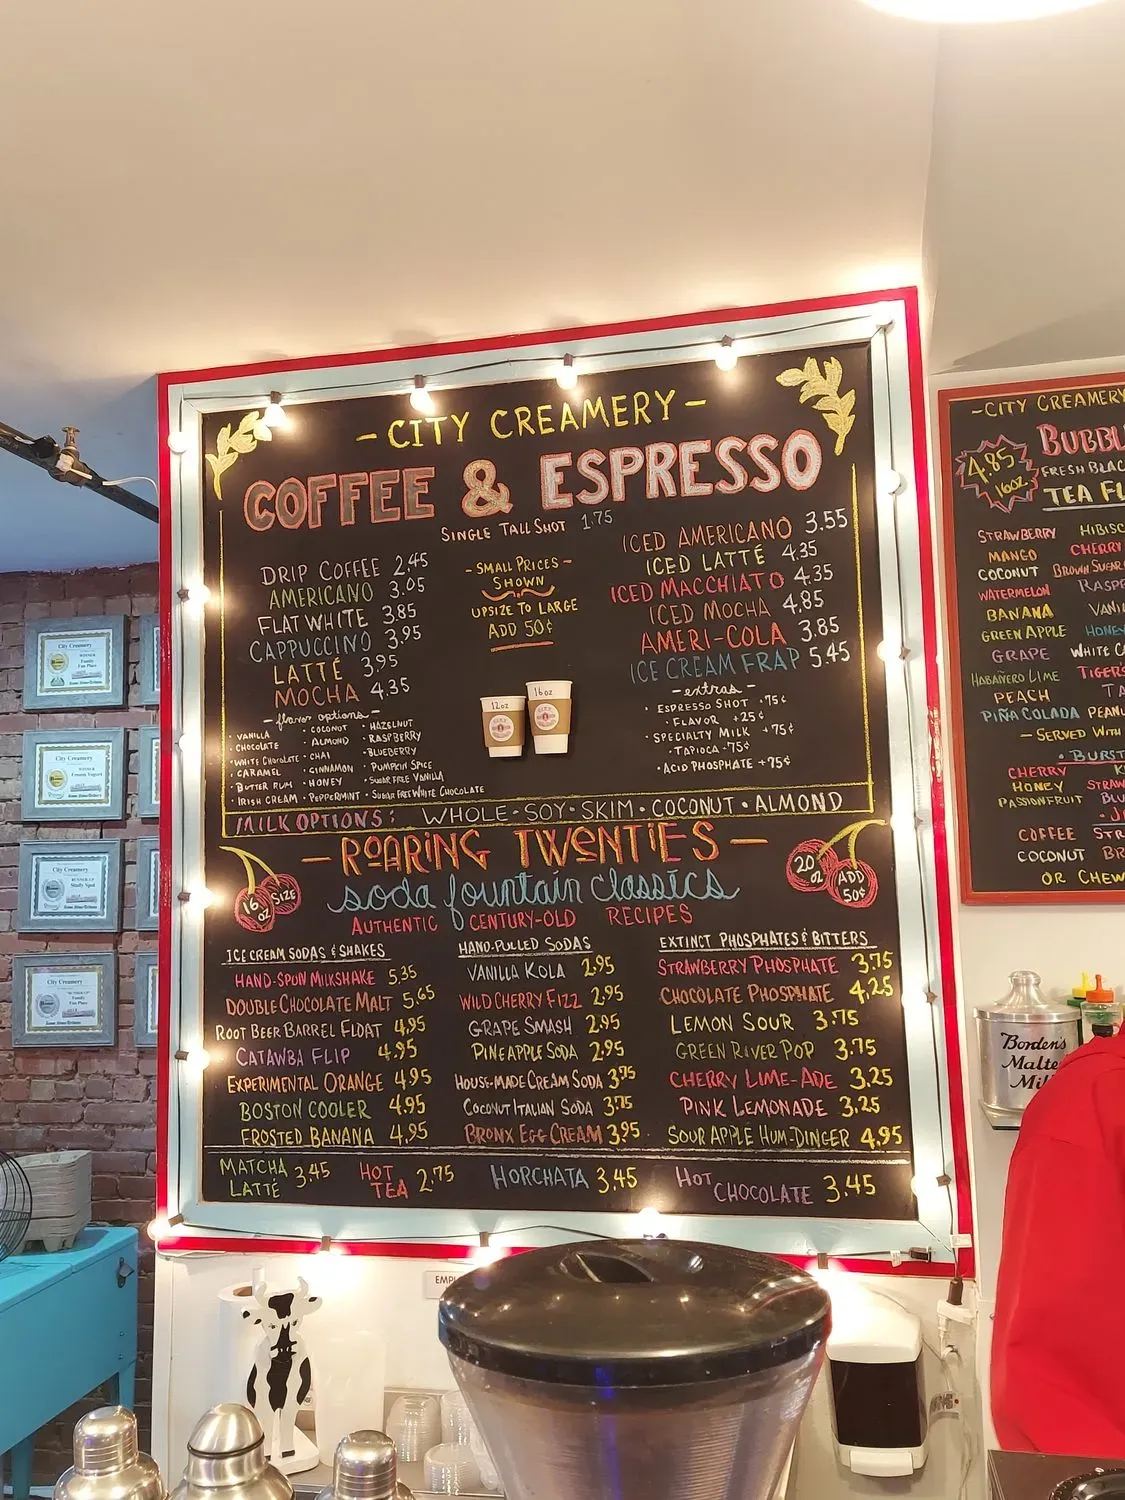 -CITY CREAMERY-
COFFEE & ESPRESSO
SINGLE TALL SHOT 1.75
DRIP COFFEE 2.45
AMERICANO 3.05
FLAT WHITE 3.85
CAPPUCCINO 3.95
LATTÉ 3.95
MOCHA 4.35
- SMALL PRICES -
SHOWN
UPSIZE TO LARGE
ADD 50¢
12oz
16oz
ICED AMERICANO 3.55
ICED LATTÉ 4.35
ICED MACCHIATO 4.35
ICED MOCHA 4.85
AMERI-COLA 3.85
ICE CREAM FRAP 5.45
- flavor options -
• VANILLA • COCONUT • HAZELNUT
• CHOCOLATE • ALMOND • RASPBERRY
• WHITE CHOCOLATE • CHAI • BLUEBERRY
• CARAMEL • CINNAMON • PUMPKIN SPICE
• BUTTER RUM • HONEY • SUGAR FREE VANILLA
• IRISH CREAM • PEPPERMINT • SUGAR FREE WHITE CHOCOLATE
- extras -
• ESPRESSO SHOT +75¢
• FLAVOR +25¢
• SPECIALTY MILK +75¢
• TAPIOCA -75¢
• ACID PHOSPHATE +75¢
MILK OPTIONS: WHOLE • SOY • SKIM • COCONUT • ALMOND
- ROARING TWENTIES -
soda fountain classics
AUTHENTIC CENTURY-OLD RECIPES
16 oz SIZE
20 oz ADD 50¢
ICE CREAM SODAS & SHAKES
HAND-SPUN MILKSHAKE 5.35
DOUBLE CHOCOLATE MALT 5.65
ROOT BEER BARREL FLOAT 4.95
CATAWBA FLIP 4.95
EXPERIMENTAL ORANGE 4.95
BOSTON COOLER 4.95
FROSTED BANANA 4.95
HAND-PULLED SODAS
VANILLA KOLA 2.95
WILD CHERRY FIZZ 2.95
GRAPE SMASH 2.95
PINEAPPLE SODA 2.95
HOUSE-MADE CREAM SODA 3.75
COCONUT ITALIAN SODA 3.75
BRONX EGG CREAM 3.95
EXTINCT PHOSPHATES & BITTERS
STRAWBERRY PHOSPHATE 3.75
CHOCOLATE PHOSPHATE 4.25
LEMON SOUR 3.75
GREEN RIVER POP 3.75
CHERRY LIME-ADE 3.25
PINK LEMONADE 3.25
SOUR APPLE HUM-DINGER 4.95
MATCHA LATTÉ 3.45 HOT TEA 2.75 HORCHATA 3.45 HOT CHOCOLATE 3.45
-CITY CREAMERY
4.85
16oz
BUBBL
FRESH BLAC
TEA FL
STRAWBERRY HIBISC
MANGO CHERRY
COCONUT BROWN SUGAR
WATERMELON RASP
BANANA VANI
GREEN APPLE HONEY
GRAPE WHITE C
HABAÑERO LIME TIGER'S
PEACH TA
PIÑA COLADA PEANU
- SERVED WITH
• BURST
CHERRY K
HONEY STRAW
PASSIONFRUIT BLU
COFFEE STR
COCONUT BR
OR CHEW
Borden's
Malte
Mil
City Creamery
WINNER
Family
Fun Place
City Creamery
WINNER
Frozen Yogurt
City Creamery
RUNNER-UP
Study Spot
City Creamery
RUNNER-UP
Family
Fun Place
EMPL